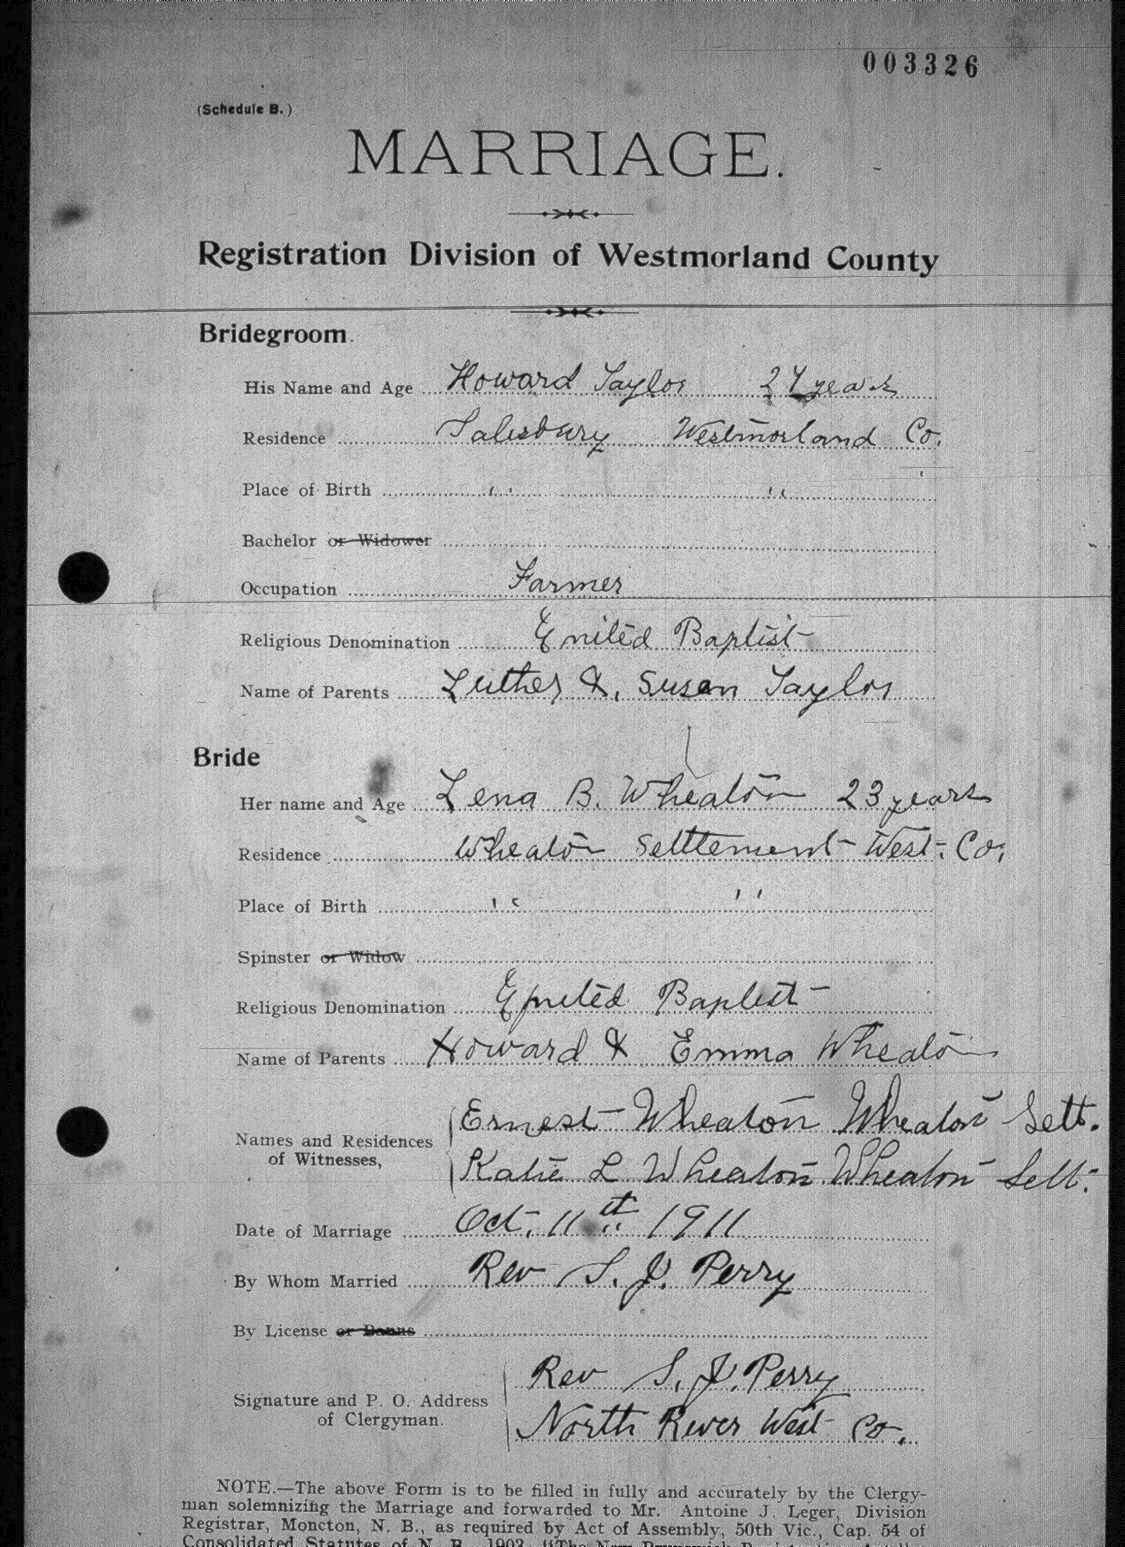 003326
(Schedule B.)
MARRIAGE.
Registration Division of Westmorland County
Bridegroom.
His Name and Age Howard Taylor 24 years
Residence Salesbury Westmorland Co.
Place of Birth " "
Bachelor or Widower
Occupation Farmer
Religious Denomination United Baptist
Name of Parents Luther &. Susan Taylor
Bride
Her name and Age Lena B. Wheaton 23 years
Residence Wheaton Settlement West. Co.
Place of Birth " "
Spinster or Widow
Religious Denomination United Baptist
Name of Parents Howard & Emma Wheaton
Names and Residences of Witnesses, Ernest Wheaton Wheaton Sett.
Katie L Wheaton Wheaton Sett.
Date of Marriage Oct. 11th 1911
By Whom Married Rev S. J. Perry
By License or Banns
Signature and P. O. Address of Clergyman. Rev S. J. Perry
North River West Co.
NOTE.—The above Form is to be filled in fully and accurately by the Clergy-
man solemnizing the Marriage and forwarded to Mr. Antoine J. Leger, Division
Registrar, Moncton, N. B., as required by Act of Assembly, 50th Vic., Cap. 54 of
Consolidated Statutes of N. B. 1903,